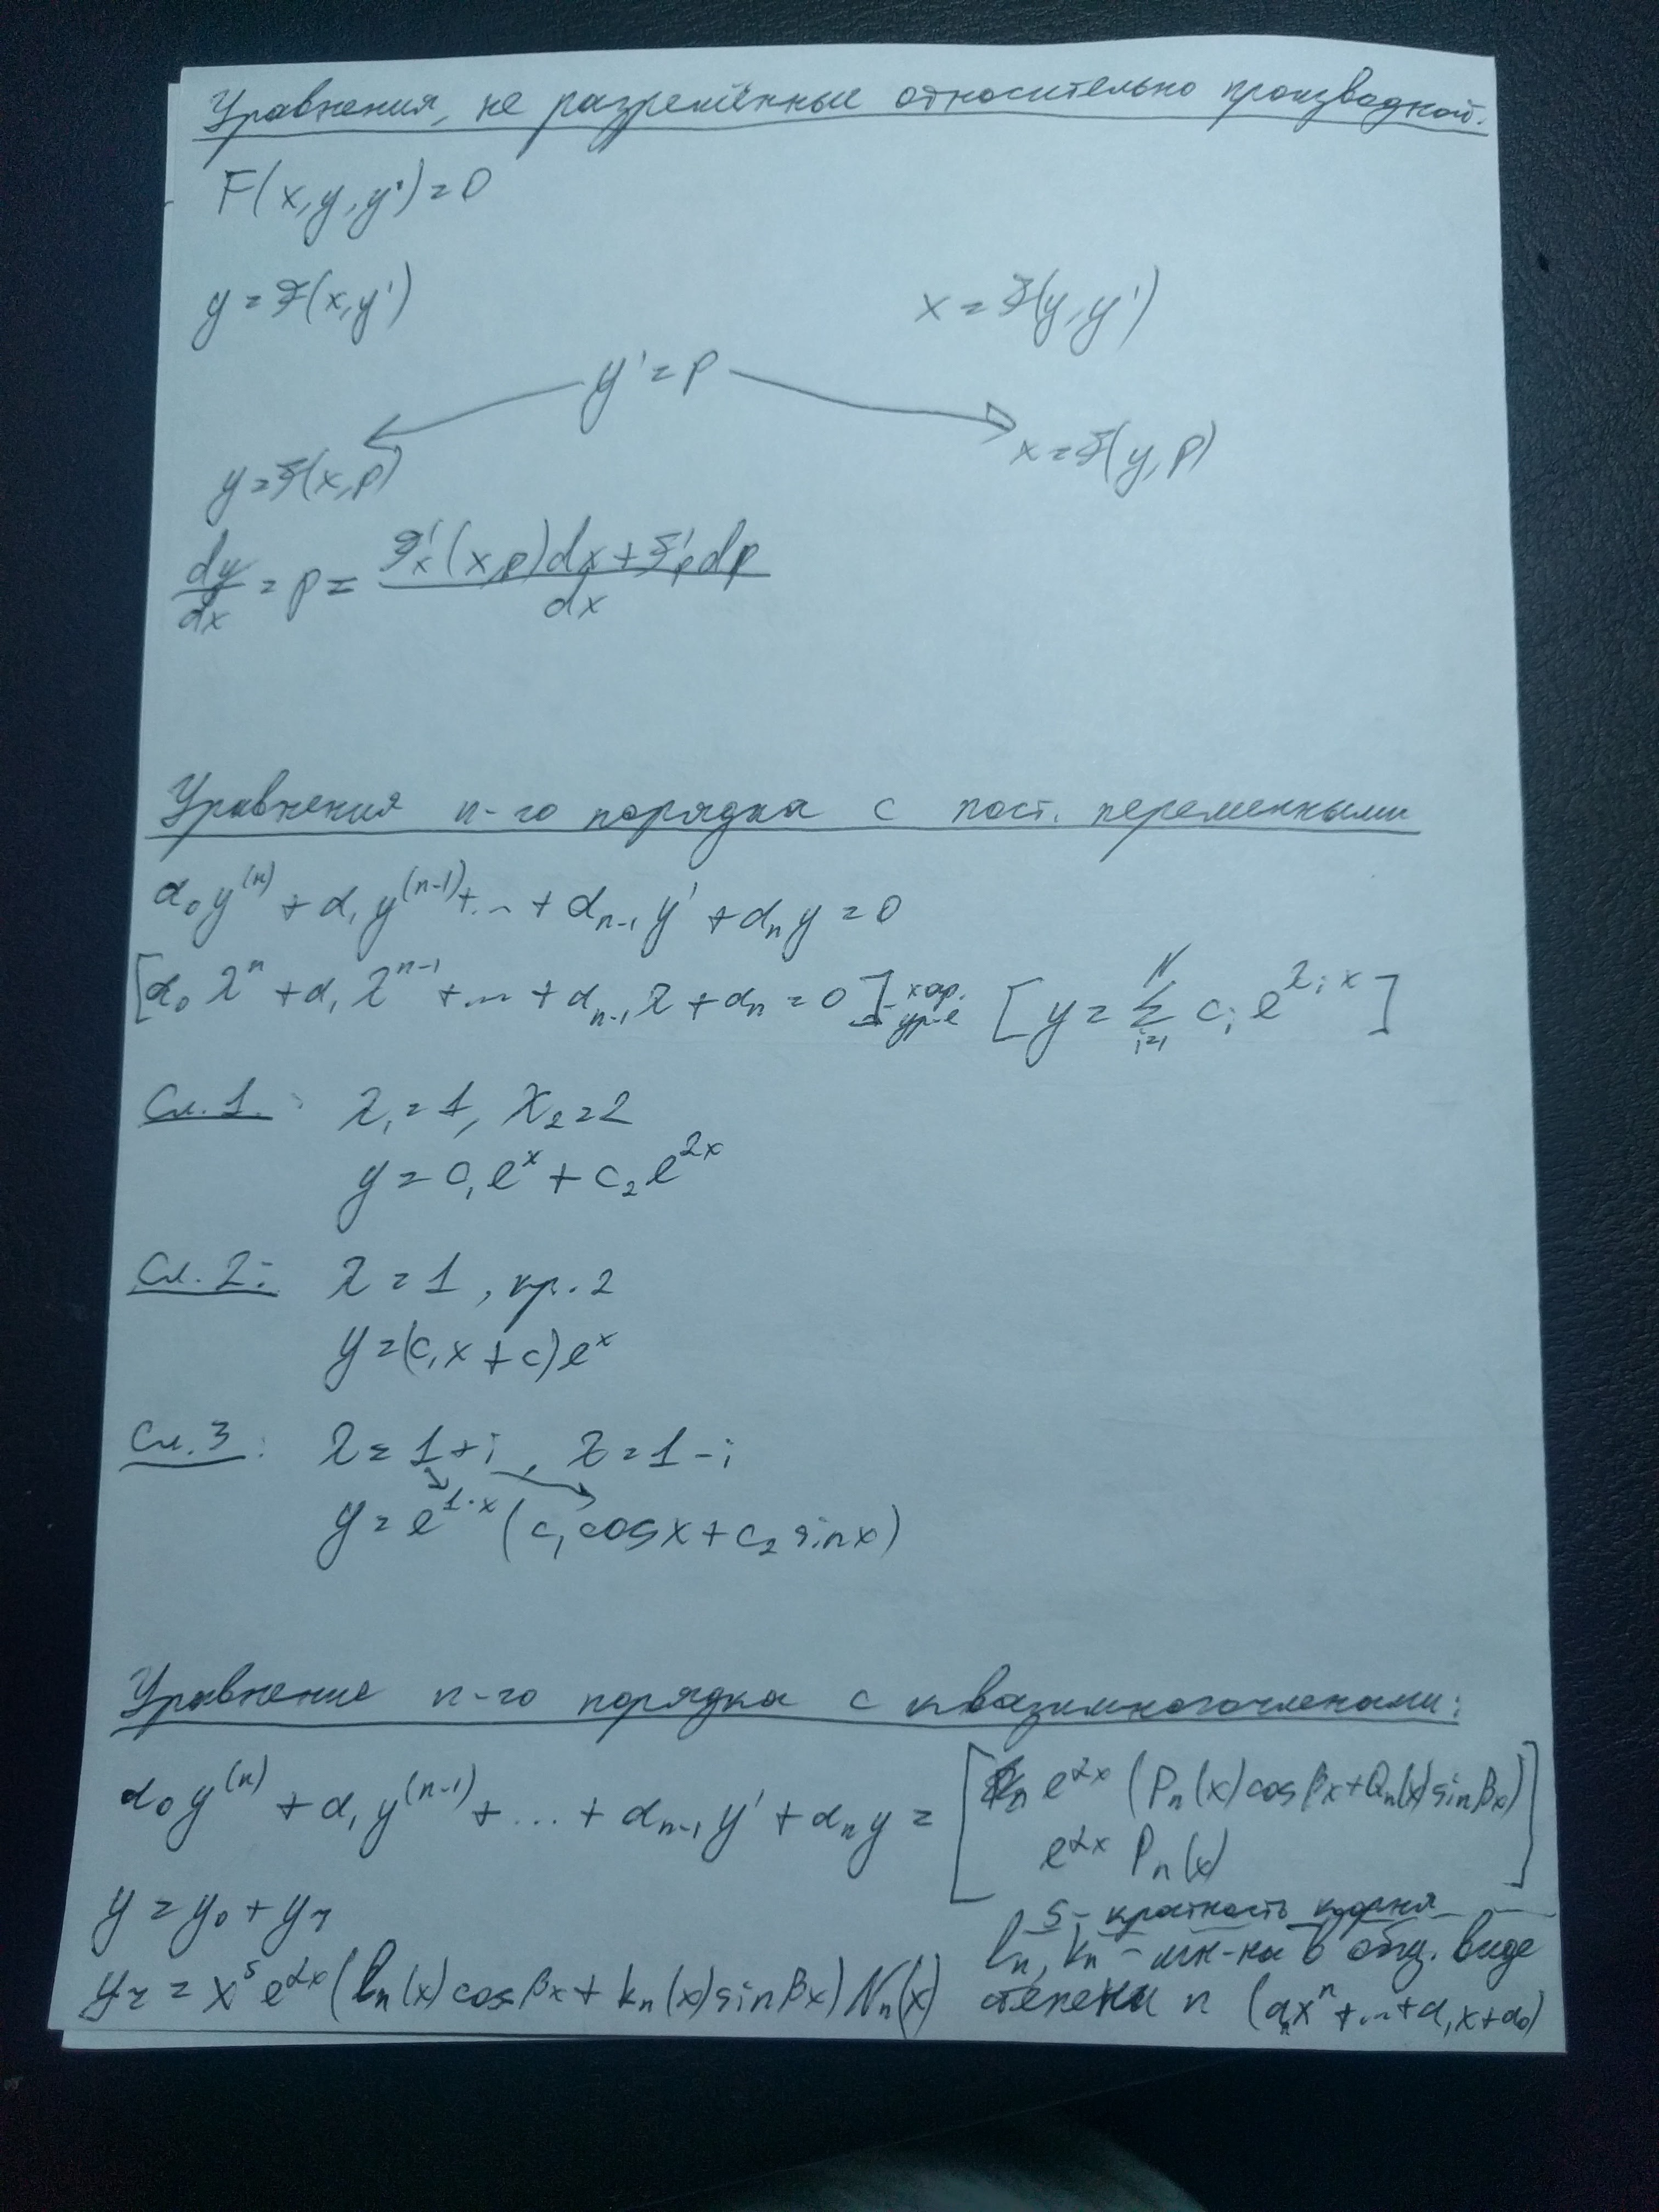 Уравнения, не разрешённые относительно производной.
F(x, y, y') = 0
y = F(x, y')   x = F(y, y')
y' = p
y = F(x, p)   x = F(y, p)
dy/dx = p = (F'x (x, p)dx + F'p dp)/dx
Уравнения n-го порядка с пост. переменными
α₀y⁽ⁿ⁾ + α₁y⁽ⁿ⁻¹⁾ + ... + αₙ₋₁y' + αₙy = 0
[α₀λⁿ + α₁λⁿ⁻¹ + ... + αₙ₋₁λ + αₙ = 0] - хар. ур-е [y = Σᵢ₌₁ᴺ cᵢ e^(λᵢx)]
Сл. 1.: λ₁ = 1, λ₂ = 2
y = c₁eˣ + c₂e²ˣ
Сл. 2: λ = 1, кр. 2
y = (c₁x + c)eˣ
Сл. 3: λ = 1 + i, λ = 1 - i
y = e^(1·x) (c₁cosx + c₂sinx)
Уравнение n-го порядка с квазимногочленами:
α₀y⁽ⁿ⁾ + α₁y⁽ⁿ⁻¹⁾ + ... + αₙ₋₁y' + αₙy = [e^(αx) (Pₙ(x)cosβx + Qₙ(x)sinβx)
e^(αx) Pₙ(x)]
y = y₀ + y₁
s - кратность корня
y₁ = xˢ e^(αx) (lₙ(x)cosβx + kₙ(x)sinβx) Nₙ(x)
lₙ, kₙ - мн-ны в общ. виде
степени n (αₙxⁿ + ... + α₁x + α₀)